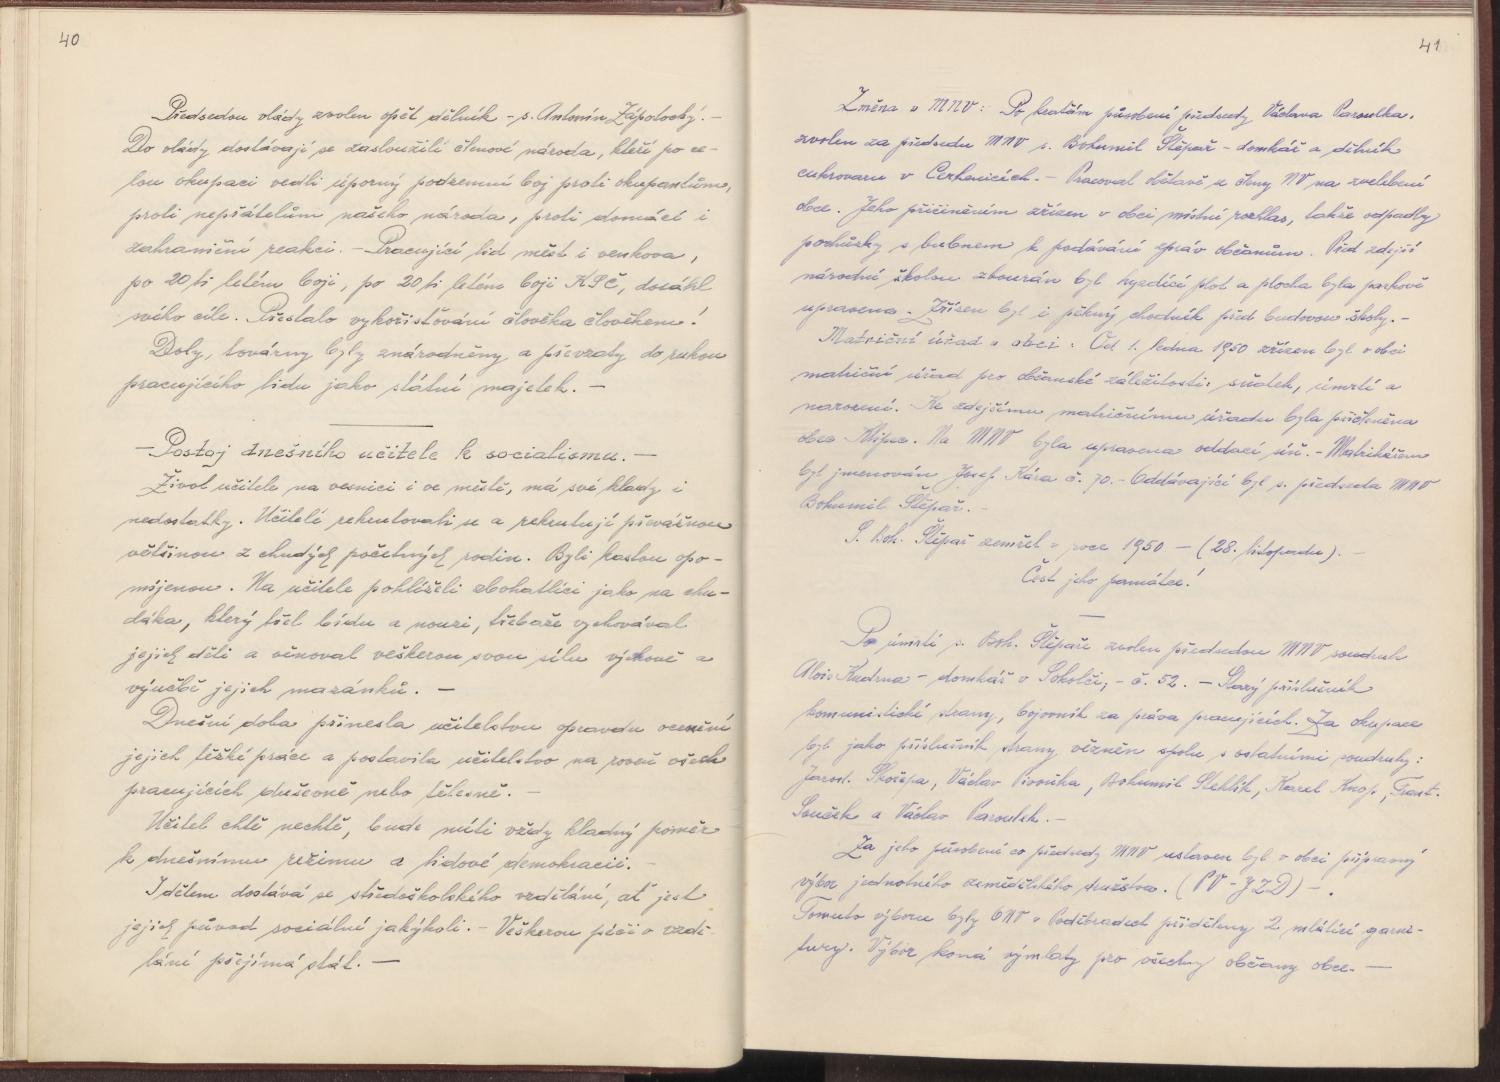 40
Předsedou vlády zvolen opět dělník - s. Antonín Zápotocký. -
Do vlády dostávají se zasloužilí členové národa, kteří po ce-
lou okupaci vedli úporný podzemní boj proti okupantům,
proti nepřátelům našeho národa, proti domácí i
zahraniční reakci. - Pracující lid měst i venkova,
po 20ti letém boji, po 20ti letém boji KSČ, dosáhl
svého cíle. Přestalo vykořisťování člověka člověkem!
Doly, továrny byly znárodněny a převzaty do rukou
pracujícího lidu jako státní majetek. -
- Postoj dnešního učitele k socialismu. -
Život učitele na vesnici i ve městě, má své klady i
nedostatky. Učitelé rekrutovali se a rekrutují převážnou
většinou z chudých početných rodin. Byli kastou opo-
míjenou. Na učitele pohlíželi zbohatlíci jako na chu-
ďáka, který třel bídu a nouzi, třebaže vychovával
jejich děti a věnoval veškerou svou sílu výchově a
výučbě jejich mazánků. -
Dnešní doba přinesla učitelstvu opravdu ocenění
jejich těžké práce a postavila učitelstvo na roveň všech
pracujících duševně nebo tělesně. -
Učitel chtě nechtě, bude míti vždy kladný poměr
k dnešnímu režimu a lidové demokracii. -
I dětem dostává se středoškolského vzdělání, ať jest
jejich původ sociální jakýkoli. - Veškerou péči o vzdě-
lání přejímá stát. -
41
Změna v MNV: Po kratším působení předsedy Václava Paroulka,
zvolen za předsedu MNV s. Bohumil Štěpař - domkář a dělník
cukrovaru v Cerhenicích. - Pracoval obětavě s členy NV na zvelebení
obce. Jeho přičiněním zřízen v obci místní rozhlas, takže odpadly
pochůzky s bubnem k podávání zpráv občanům. Před zdejší
národní školou zbourán byl hyzdící plot a plocha byla parkově
upravena. Zřízen byl i pěkný chodník před budovou školy. -
Matriční úřad v obci: Od 1. ledna 1950 zřízen byl v obci
matriční úřad pro občanské záležitosti: sňatek, úmrtí a
narození. Ke zdejšímu matričnímu úřadu byla přičleněna
obec Klipec. Na MNV byla upravena oddací síň. - Matrikářem
byl jmenován Josef Kára č. 70. - Oddávající byl s. předseda MNV
Bohumil Štěpař. -
S. Boh. Štěpař zemřel v roce 1950 - (28. listopadu). -
Čest jeho památce!
Po úmrtí s. Boh. Štěpaře zvolen předsedou MNV soudruh
Alois Kudrna - domkář v Sokolči, - č. 52. - Starý příslušník
komunistické strany, bojovník za práva pracujících. Za okupace
byl jako příslušník strany vězněn spolu s ostatními soudruhy:
Jarosl. Skořepa, Václav Pivoňka, Bohumil Stehlík, Karel Knop, Frant.
Souček a Václav Paroulek. -
Za jeho působení co předsedy MNV ustaven byl v obci přípravný
výbor jednotného zemědělského družstva. (PV - JZD) -.
Tomuto výboru byly ONV v Poděbradech přiděleny 2 mlátící garni-
tury. Výbor koná výmlaty pro všechny občany obce. -